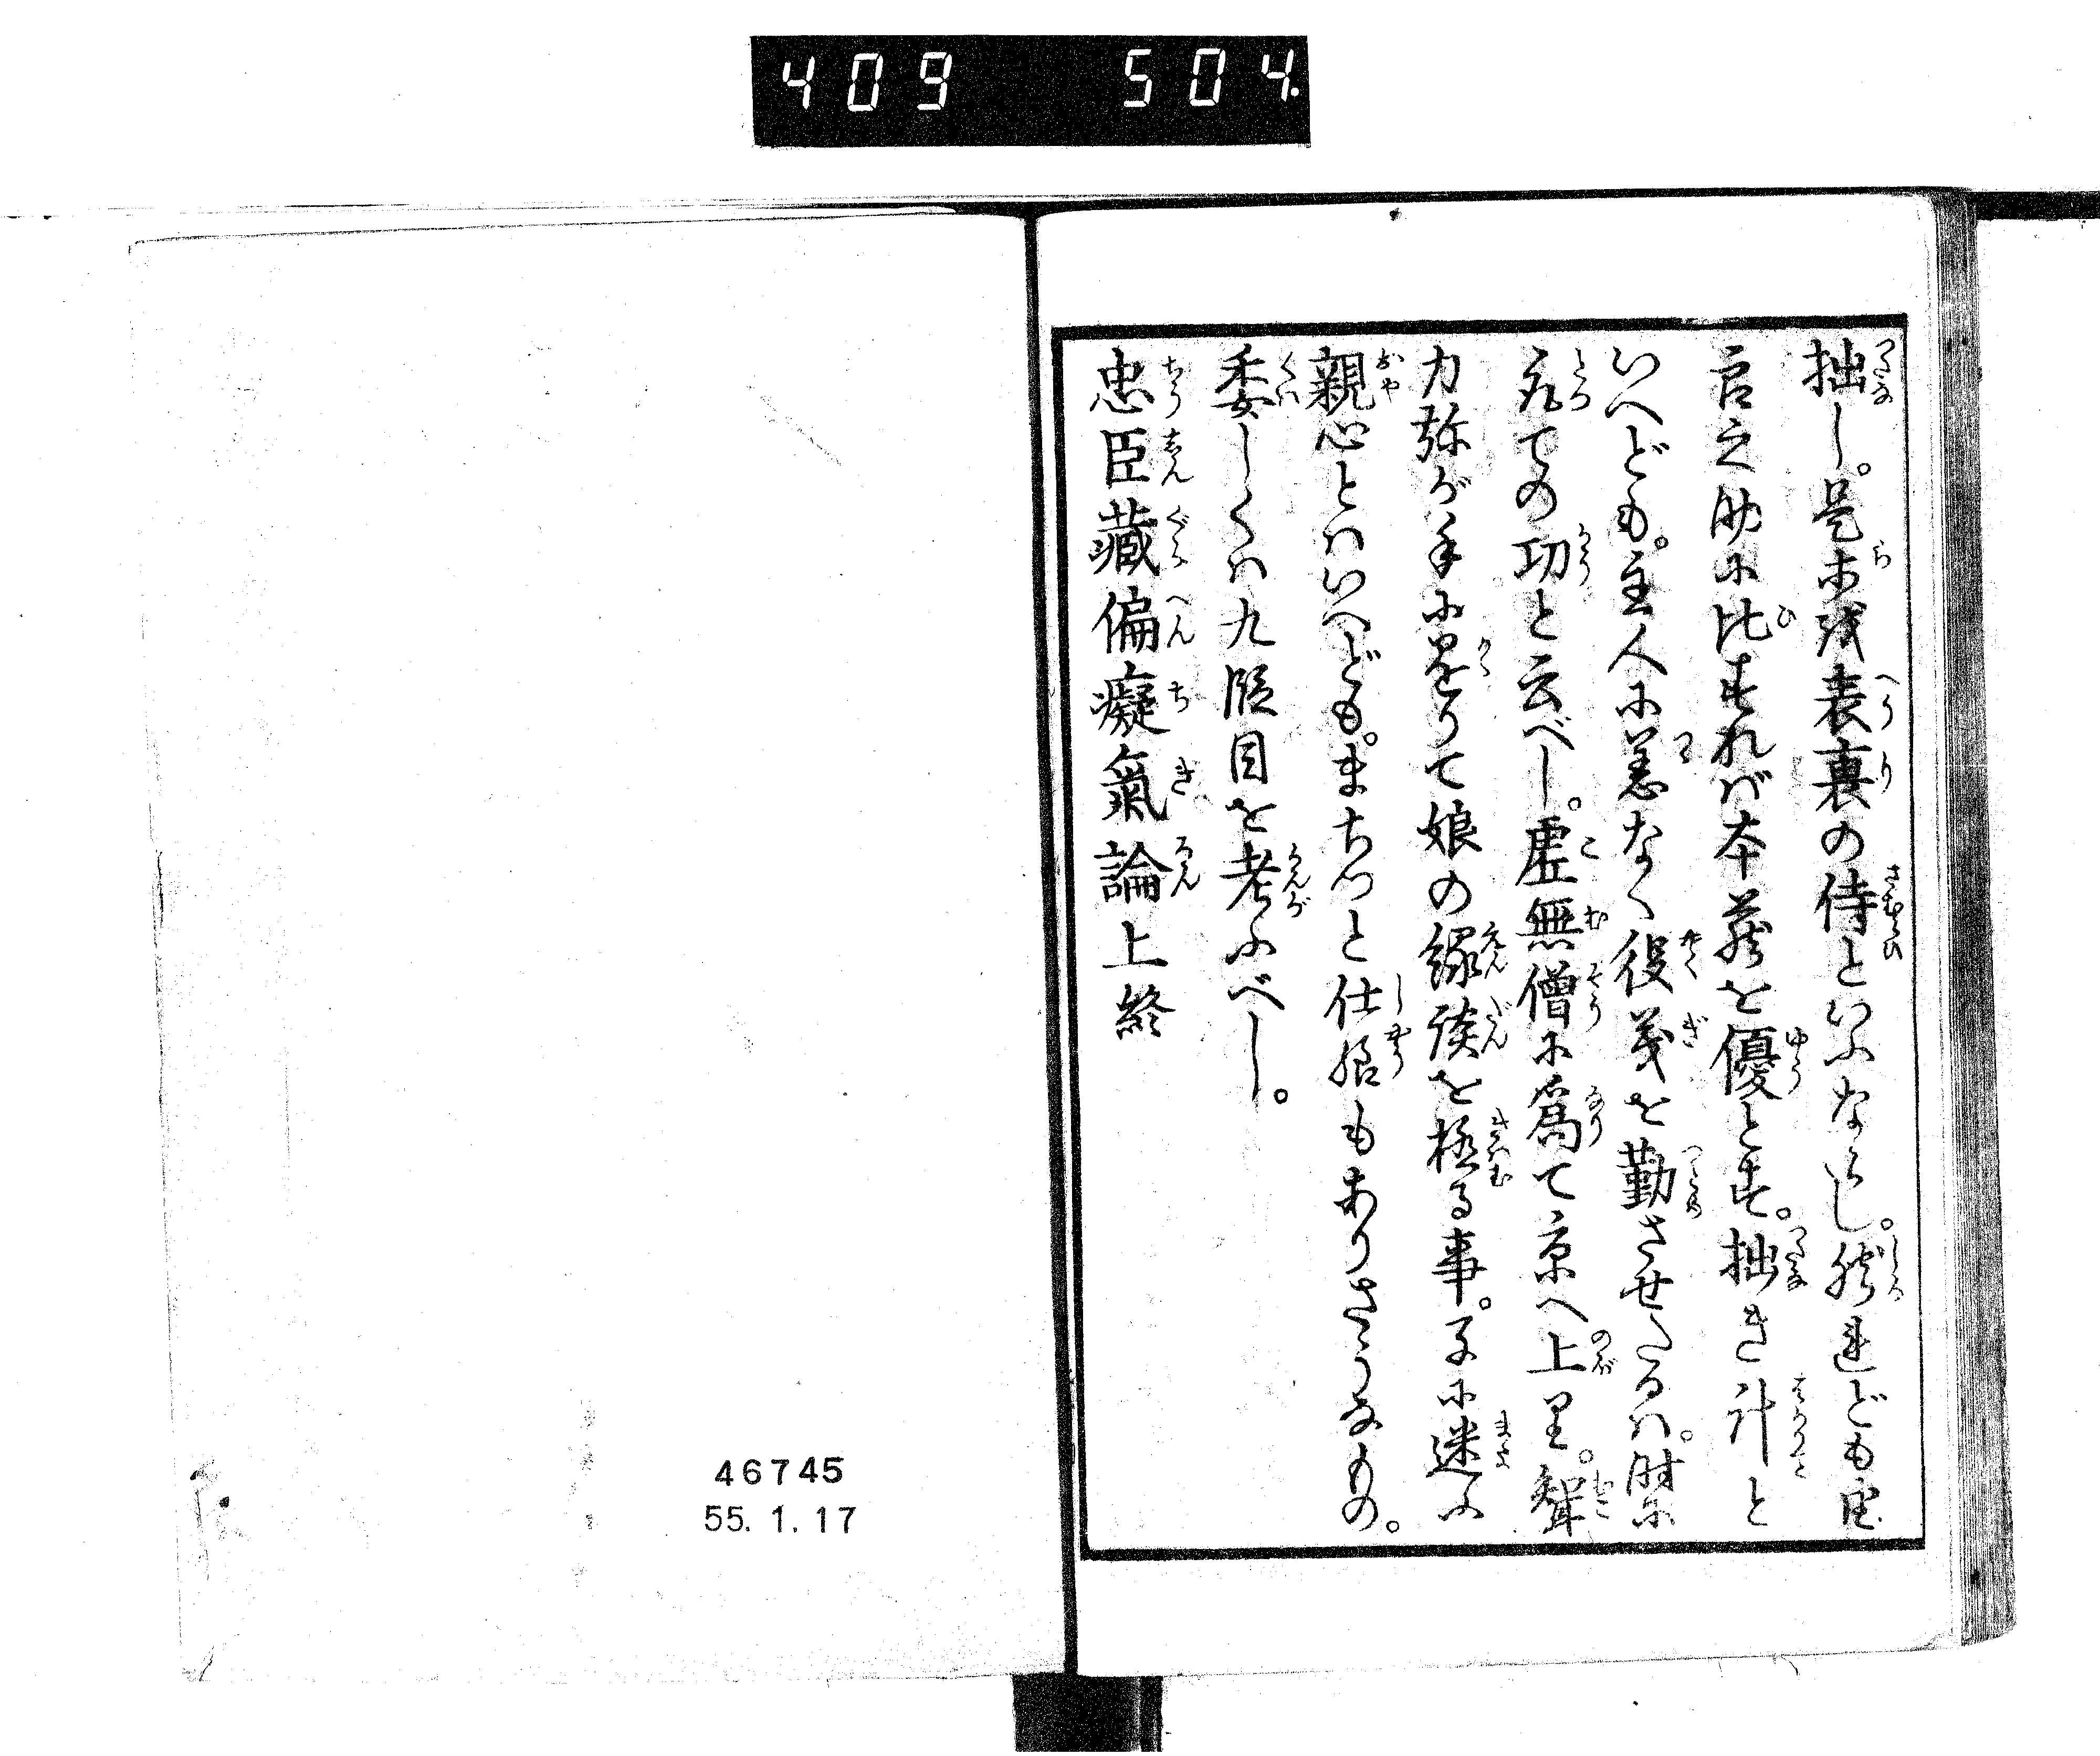 409 504.
拙し。是ホ残表裏の侍といふならし。然連ども由
良之助に比すれバ本蔵を優とす。拙き計と
いへども。主人に恙なく役義を勤させたるハ。時に
取ての功と云べし。虚無僧に為て京へ上里。聟
力弥が手にかゝりて娘の縁談を極る事。子に迷ふ
親心とハいへども。まちつと仕様もありさうなもの。
委しくハ九段目を考ふべし。
忠臣藏偏癡氣論上終
46745
55. 1. 17